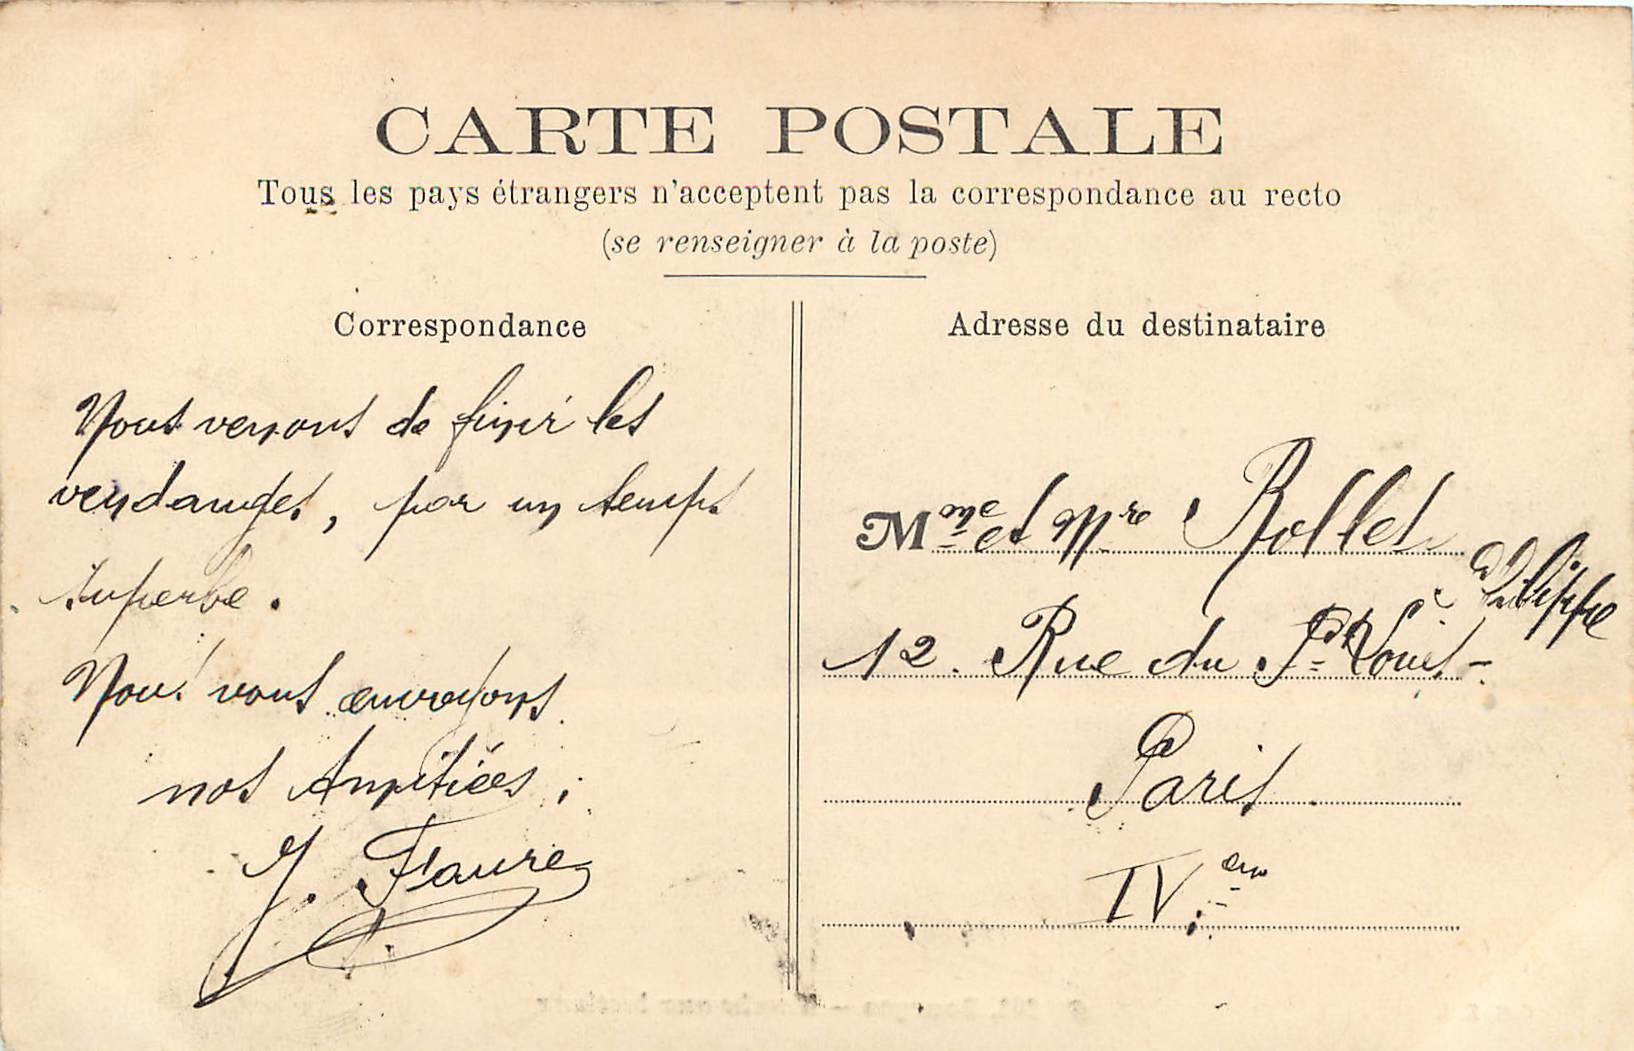 CARTE POSTALE
Tous les pays étrangers n'acceptent pas la correspondance au recto
(se renseigner à la poste)
Correspondance
Nous venons de finir les
vendanges, par un temps
superbe.
Nous vous envoyons
nos Amitiées,
J. Faure
Adresse du destinataire
Mme et Mre Rollet
12. Rue du Pt Louis-Philippe
Paris
IVem